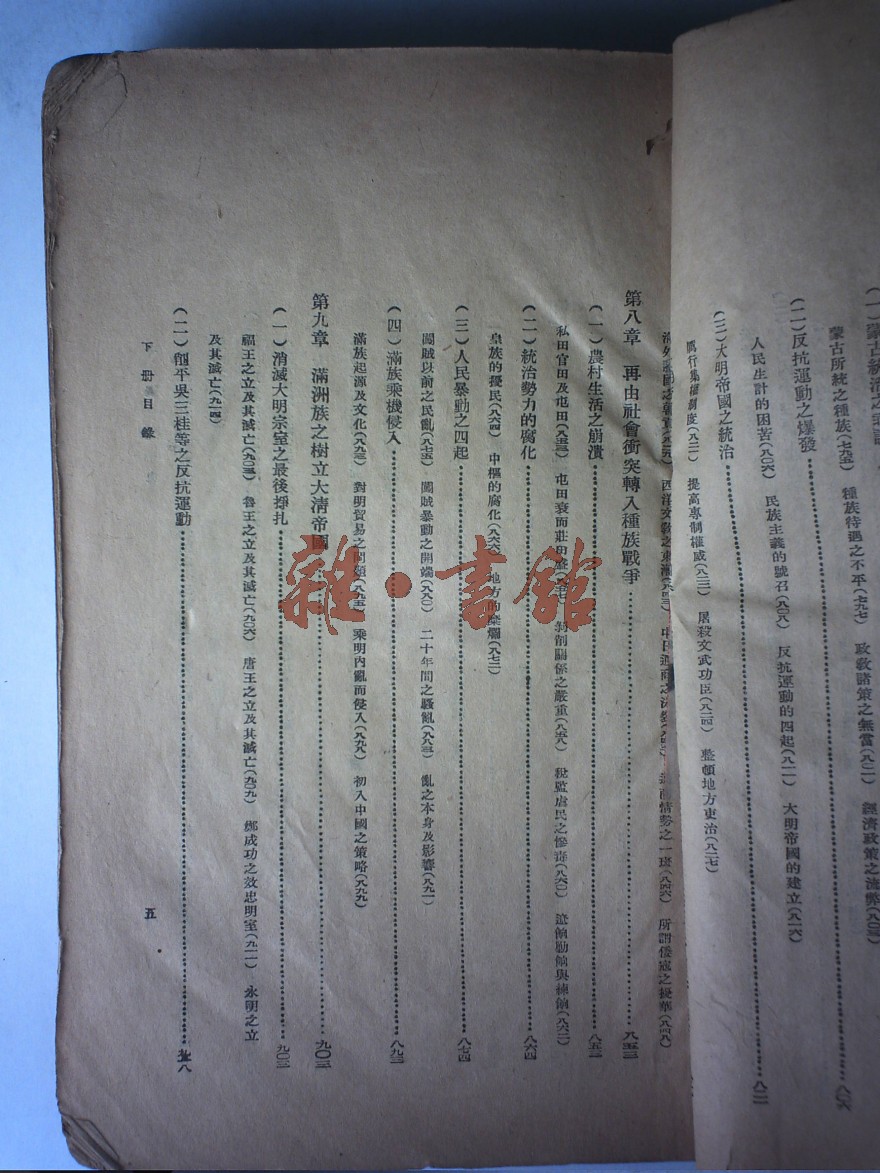 蒙古所統之種族(七九五) 種族待遇之不平(七九七) 政教諸策之無當(八〇一) 經濟政策之流弊(八〇三)
(二)反抗運動之爆發
人民生計的困苦(八〇六) 民族主義的號召(八〇八) 反抗運動的四起(八一一) 大明帝國的建立(八一六)
(三)大明帝國之統治
厲行集權制度(八二一) 提高專制權威(八二三) 屠殺文武功臣(八二四) 整頓地方吏治(八二七)
西洋文教之東漸 所謂倭寇之擾華(八四八)
第八章 再由社會衝突轉入種族戰爭 八五三
(一)農村生活之崩潰 八五三
私田官田及屯田(八五三) 屯田衰而莊田盛 剝削關係之嚴重(八五八) 稅監虐民之慘毒(八六〇) 遼餉勦餉與練餉(八六二)
(二)統治勢力的腐化 八六四
皇族的擾民(八六四) 中樞的腐化(八六六) 地方的糜爛(八七二)
(三)人民暴動之四起 八七四
闖賊以前之民亂(八七五) 闖賊暴動之開端(八八〇) 二十年間之騷亂(八八三) 亂之本身及影響(八九一)
(四)滿族乘機侵入 八九三
滿族起源及文化(八九三) 對明貿易之問題(八九五) 乘明內亂而侵入(八九九) 初入中國之策略(八九九)
第九章 滿洲族之樹立大清帝國 九〇三
(一)消滅大明宗室之最後掙扎 九〇三
福王之立及其滅亡(九〇三) 魯王之立及其滅亡(九〇六) 唐王之立及其滅亡(九〇九) 鄭成功之效忠明室(九一一) 永明之立
及其滅亡(九一四)
(二)削平吳三桂等之反抗運動
下冊目錄 五
雜·書館